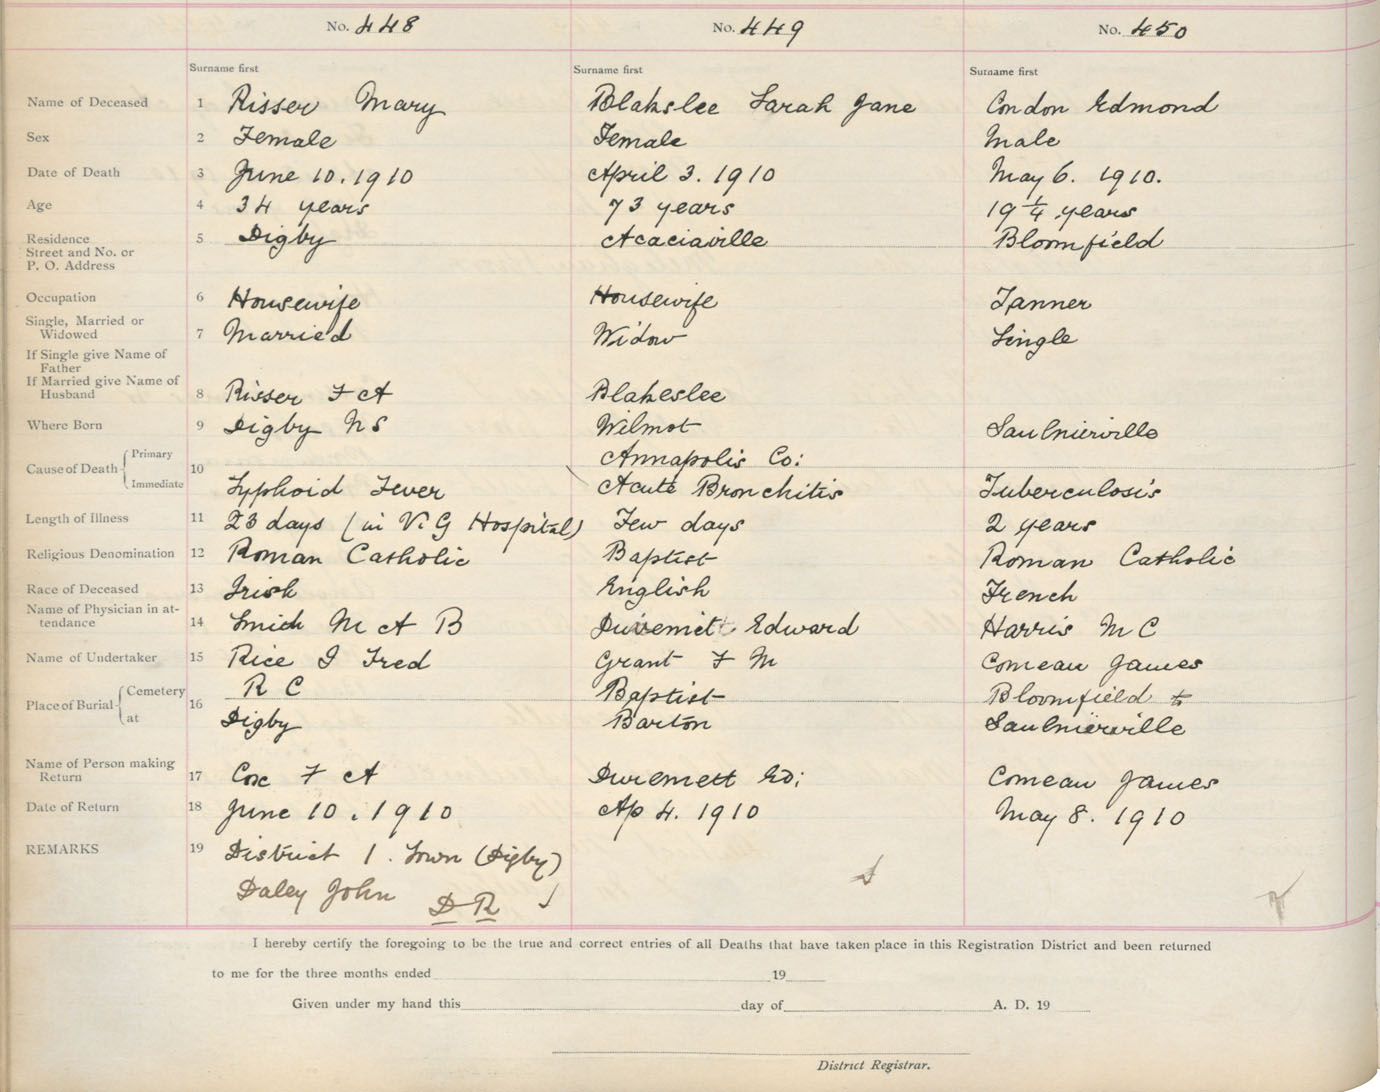 No. 448 No. 449 No. 450
Surname first Surname first Surname first
Name of Deceased 1 Risser Mary Blakslee Sarah Jane Condon Edmond
Sex 2 Female Female Male
Date of Death 3 June 10. 1910 April 3. 1910 May 6. 1910.
Age 4 34 years 73 years 19 1/4 years
Residence 5 Digby Acaciaville Bloomfield
Street and No. or
P. O. Address
Occupation 6 Housewife Housewife Tanner
Single, Married or
Widowed 7 Married Widow Single
If Single give Name of
Father
If Married give Name of
Husband 8 Risser F A Blakeslee
Where Born 9 Digby N S Wilmot Saulnierville
Primary Annapolis Co:
Cause of Death 10
Immediate Typhoid Fever Acute Bronchitis Tuberculosis
Length of Illness 11 23 days (in V. G Hospital) Few days 2 years
Religious Denomination 12 Roman Catholic Baptist Roman Catholic
Race of Deceased 13 Irish English French
Name of Physician in at-
tendance 14 Smith M A B Edward Harris M C
Name of Undertaker 15 Rice I Fred Grant F M Comeau James
Cemetery R C Baptist Bloomfield
Place of Burial 16
at Digby Barton Saulnierville
Name of Person making
Return 17 Cox F A Ed: Comeau James
Date of Return 18 June 10. 1910 Ap 4. 1910 May 8. 1910
REMARKS 19 District 1. Town (Digby)
Daley John D R
I hereby certify the foregoing to be the true and correct entries of all Deaths that have taken place in this Registration District and been returned
to me for the three months ended 19
Given under my hand this day of A. D. 19
District Registrar.